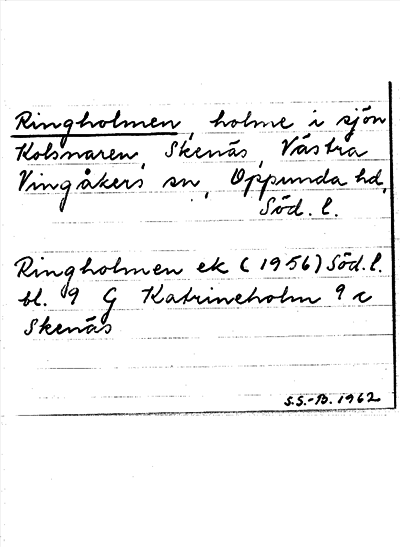 Ringholmen, holme i sjön
Kolsnaren, Skenäs, Västra
Vingåkers sn, Oppunda hd,
Söd. l.
Ringholmen ek (1956) Söd. l.
bl. 9 G Katrineholm 9 c
Skenäs
S.S.-B. 1962